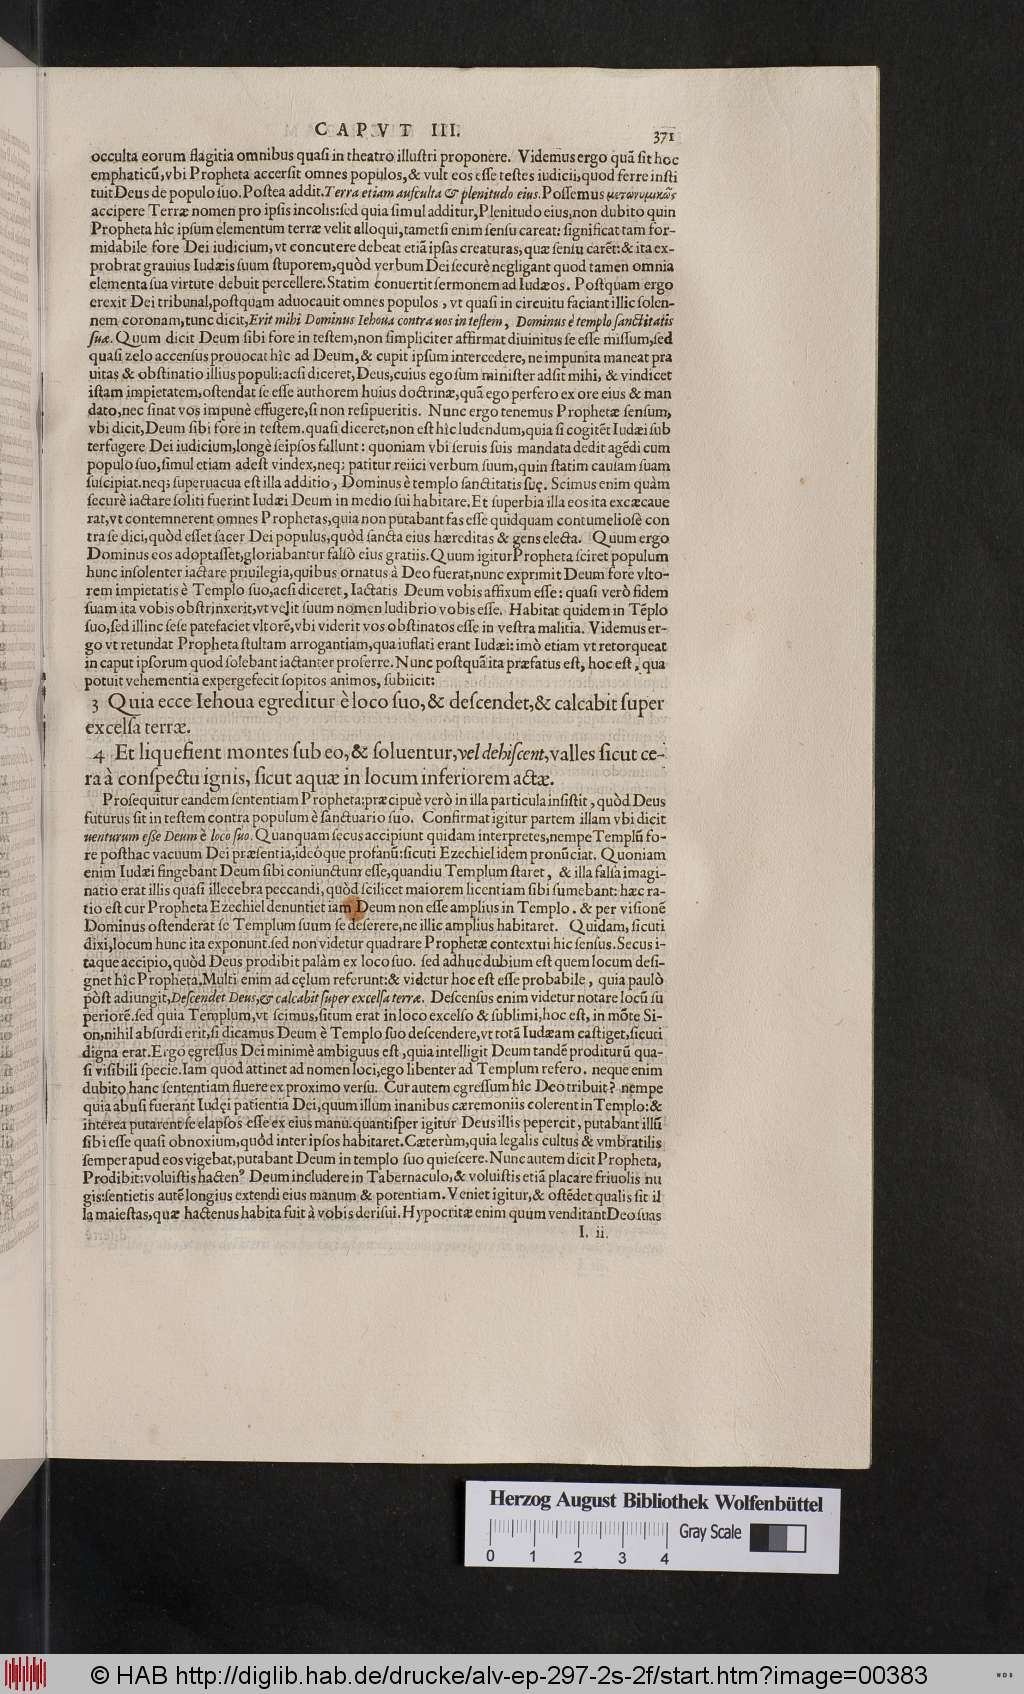 CAPVT III. 371
occulta eorum flagitia omnibus quasi in theatro illustri proponere. Videmus ergo quã sit hoc
emphaticũ, vbi Propheta accersit omnes populos, & vult eos esse testes iudicii, quod ferre insti
tuit Deus de populo suo. Postea addit. Terra etiam ausculta & plenitudo eius. Possemus μετωνυμικῶς
accipere Terræ nomen pro ipsis incolis: sed quia simul additur, Plenitudo eius, non dubito quin
Propheta hîc ipsum elementum terræ velit alloqui, tametsi enim sensu careat: significat tam for-
midabile fore Dei iudicium, vt concutere debeat etiã ipsas creaturas, quæ sensu carēt: & ita ex-
probrat grauius Iudæis suum stuporem, quòd verbum Dei securè negligant quod tamen omnia
elementa sua virtute debuit percellere. Statim conuertit sermonem ad Iudæos. Postquam ergo
erexit Dei tribunal, postquam aduocauit omnes populos, vt quasi in circuitu faciant illic solen-
nem coronam, tunc dicit, Erit mihi Dominus Iehoua contra uos in testem, Dominus è templo sanctitatis
suæ. Quum dicit Deum sibi fore in testem, non simpliciter affirmat diuinitus se esse missum, sed
quasi zelo accensus prouocat hîc ad Deum, & cupit ipsum intercedere, ne impunita maneat pra
uitas & obstinatio illius populi: acsi diceret, Deus, cuius ego sum minister adsit mihi, & vindicet
istam impietatem, ostendat se esse authorem huius doctrinæ, quã ego perfero ex ore eius & man
dato, nec sinat vos impunè effugere, si non resipueritis. Nunc ergo tenemus Prophetæ sensum,
vbi dicit, Deum sibi fore in testem. quasi diceret, non est hîc ludendum, quia si cogitēt Iudæi sub
terfugere Dei iudicium, longè seipsos fallunt: quoniam vbi seruis suis mandata dedit agēdi cum
populo suo, simul etiam adest vindex, neq; patitur reiici verbum suum, quin statim causam suam
suscipiat. neq; superuacua est illa additio, Dominus è templo sanctitatis suę. Scimus enim quàm
securè iactare soliti fuerint Iudæi Deum in medio sui habitare. Et superbia illa eos ita excæcaue
rat, vt contemnerent omnes Prophetas, quia non putabant fas esse quidquam contumeliosè con
tra se dici, quòd esset sacer Dei populus, quòd sancta eius hæreditas & gens electa. Quum ergo
Dominus eos adoptasset, gloriabantur falsò eius gratiis. Quum igitur Propheta sciret populum
hunc insolenter iactare priuilegia, quibus ornatus à Deo fuerat, nunc exprimit Deum fore vlto-
rem impietatis è Templo suo, acsi diceret, Iactatis Deum vobis affixum esse: quasi verò fidem
suam ita vobis obstrinxerit, vt velit suum nomen ludibrio vobis esse. Habitat quidem in Tēplo
suo, sed illinc sese patefaciet vltorē, vbi viderit vos obstinatos esse in vestra malitia. Videmus er-
go vt retundat Propheta stultam arrogantiam, qua inflati erant Iudæi: imò etiam vt retorqueat
in caput ipsorum quod solebant iactanter proferre. Nunc postquã ita præfatus est, hoc est, qua
potuit vehementia expergefecit sopitos animos, subiicit:
3 Quia ecce Iehoua egreditur è loco suo, & descendet, & calcabit super
excelsa terræ.
4 Et liquefient montes sub eo, & soluentur, vel dehiscent, valles sicut ce-
ra à conspectu ignis, sicut aquæ in locum inferiorem actæ.
Prosequitur eandem sententiam Propheta: præcipuè verò in illa particula insistit, quòd Deus
futurus sit in testem contra populum è sanctuario suo. Confirmat igitur partem illam vbi dicit
uenturum esse Deum è loco suo. Quanquam secus accipiunt quidam interpretes, nempe Templũ fo-
re posthac vacuum Dei præsentia, ideóque profanũ: sicuti Ezechiel idem pronũciat. Quoniam
enim Iudæi fingebant Deum sibi coniunctum esse, quandiu Templum staret, & illa falsa imagi-
natio erat illis quasi illecebra peccandi, quòd scilicet maiorem licentiam sibi sumebant: hæc ra-
tio est cur Propheta Ezechiel denuntiet iam Deum non esse amplius in Templo. & per visionē
Dominus ostenderat se Templum suum se deserere, ne illic amplius habitaret. Quidam, sicuti
dixi, locum hunc ita exponunt. sed non videtur quadrare Prophetæ contextui hic sensus. Secus i-
taque accipio, quòd Deus prodibit palàm ex loco suo. sed adhuc dubium est quem locum desi-
gnet hîc Propheta. Multi enim ad cęlum referunt: & videtur hoc est esse probabile, quia paulò
pòst adiungit, Descendet Deus, & calcabit super excelsa terræ. Descensus enim videtur notare locũ su
periorē. sed quia Templum, vt scimus, situm erat in loco excelso & sublimi, hoc est, in mōte Si-
on, nihil absurdi erit, si dicamus Deum è Templo suo descendere, vt totã Iudæam castiget, sicuti
digna erat. Ergo egressus Dei minimè ambiguus est, quia intelligit Deum tandē proditurũ qua-
si visibili specie. Iam quod attinet ad nomen loci, ego libenter ad Templum refero. neque enim
dubito hanc sententiam fluere ex proximo versu. Cur autem egressum hîc Deo tribuit? nempe
quia abusi fuerant Iudęi patientia Dei, quum illum inanibus cæremoniis colerent in Templo: &
interea putarent se elapsos esse ex eius manu. quantisper igitur Deus illis pepercit, putabant illũ
sibi esse quasi obnoxium, quòd inter ipsos habitaret. Cæterùm, quia legalis cultus & vmbratilis
semper apud eos vigebat, putabant Deum in templo suo quiescere. Nunc autem dicit Propheta,
Prodibit: voluistis hacten⁹ Deum includere in Tabernaculo, & voluistis etiã placare friuolis nu
gis: sentietis autē longius extendi eius manum & potentiam. Veniet igitur, & ostēdet qualis sit il
la maiestas, quæ hactenus habita fuit à vobis derisui. Hypocritæ enim quum venditant Deo suas
I. ii.
Herzog August Bibliothek Wolfenbüttel
Gray Scale
0 1 2 3 4
© HAB http://diglib.hab.de/drucke/alv-ep-297-2s-2f/start.htm?image=00383